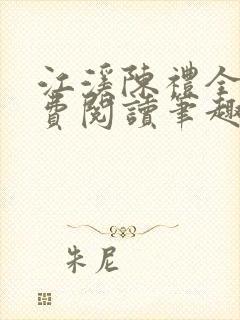 江溪陳禮全
費閱讀筆趣
朱尼